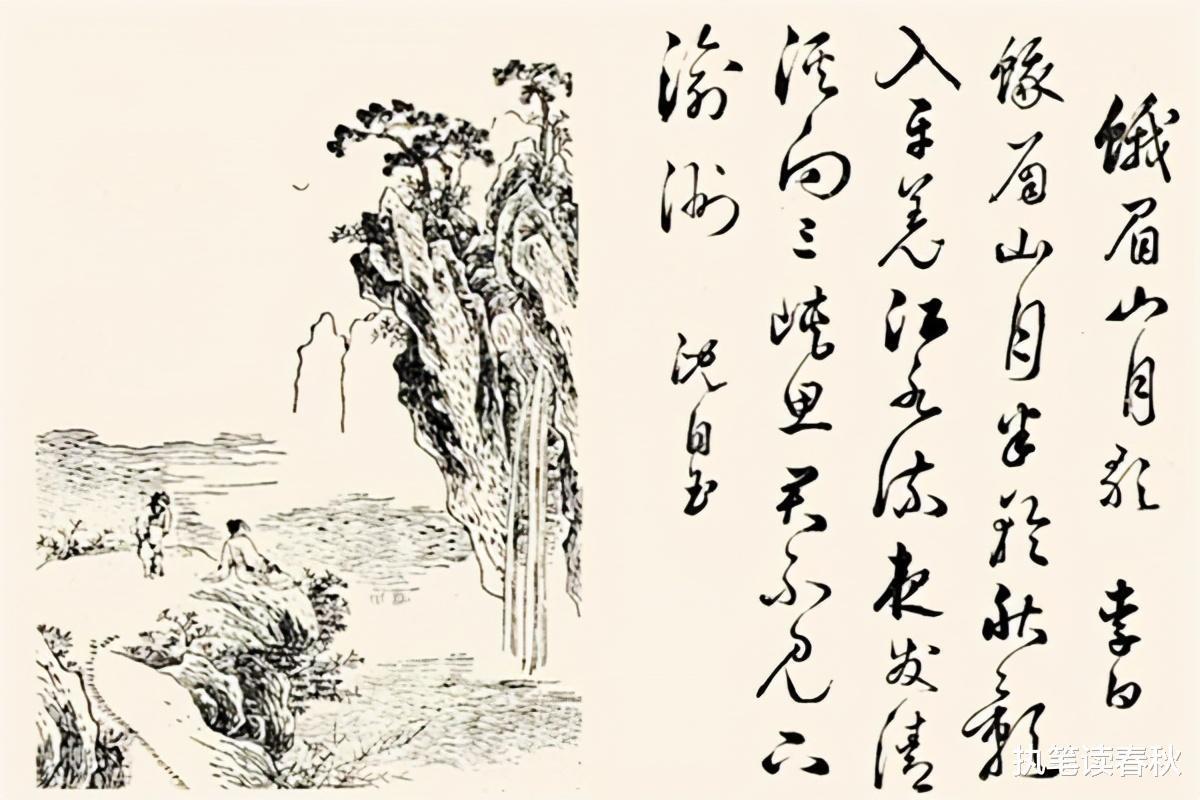 蛾眉山月歌 李白
蛾眉山月半輪秋影
入平羌江水流夜发清
溪向三峽思君不見下
渝洲 沈自
执笔读春秋